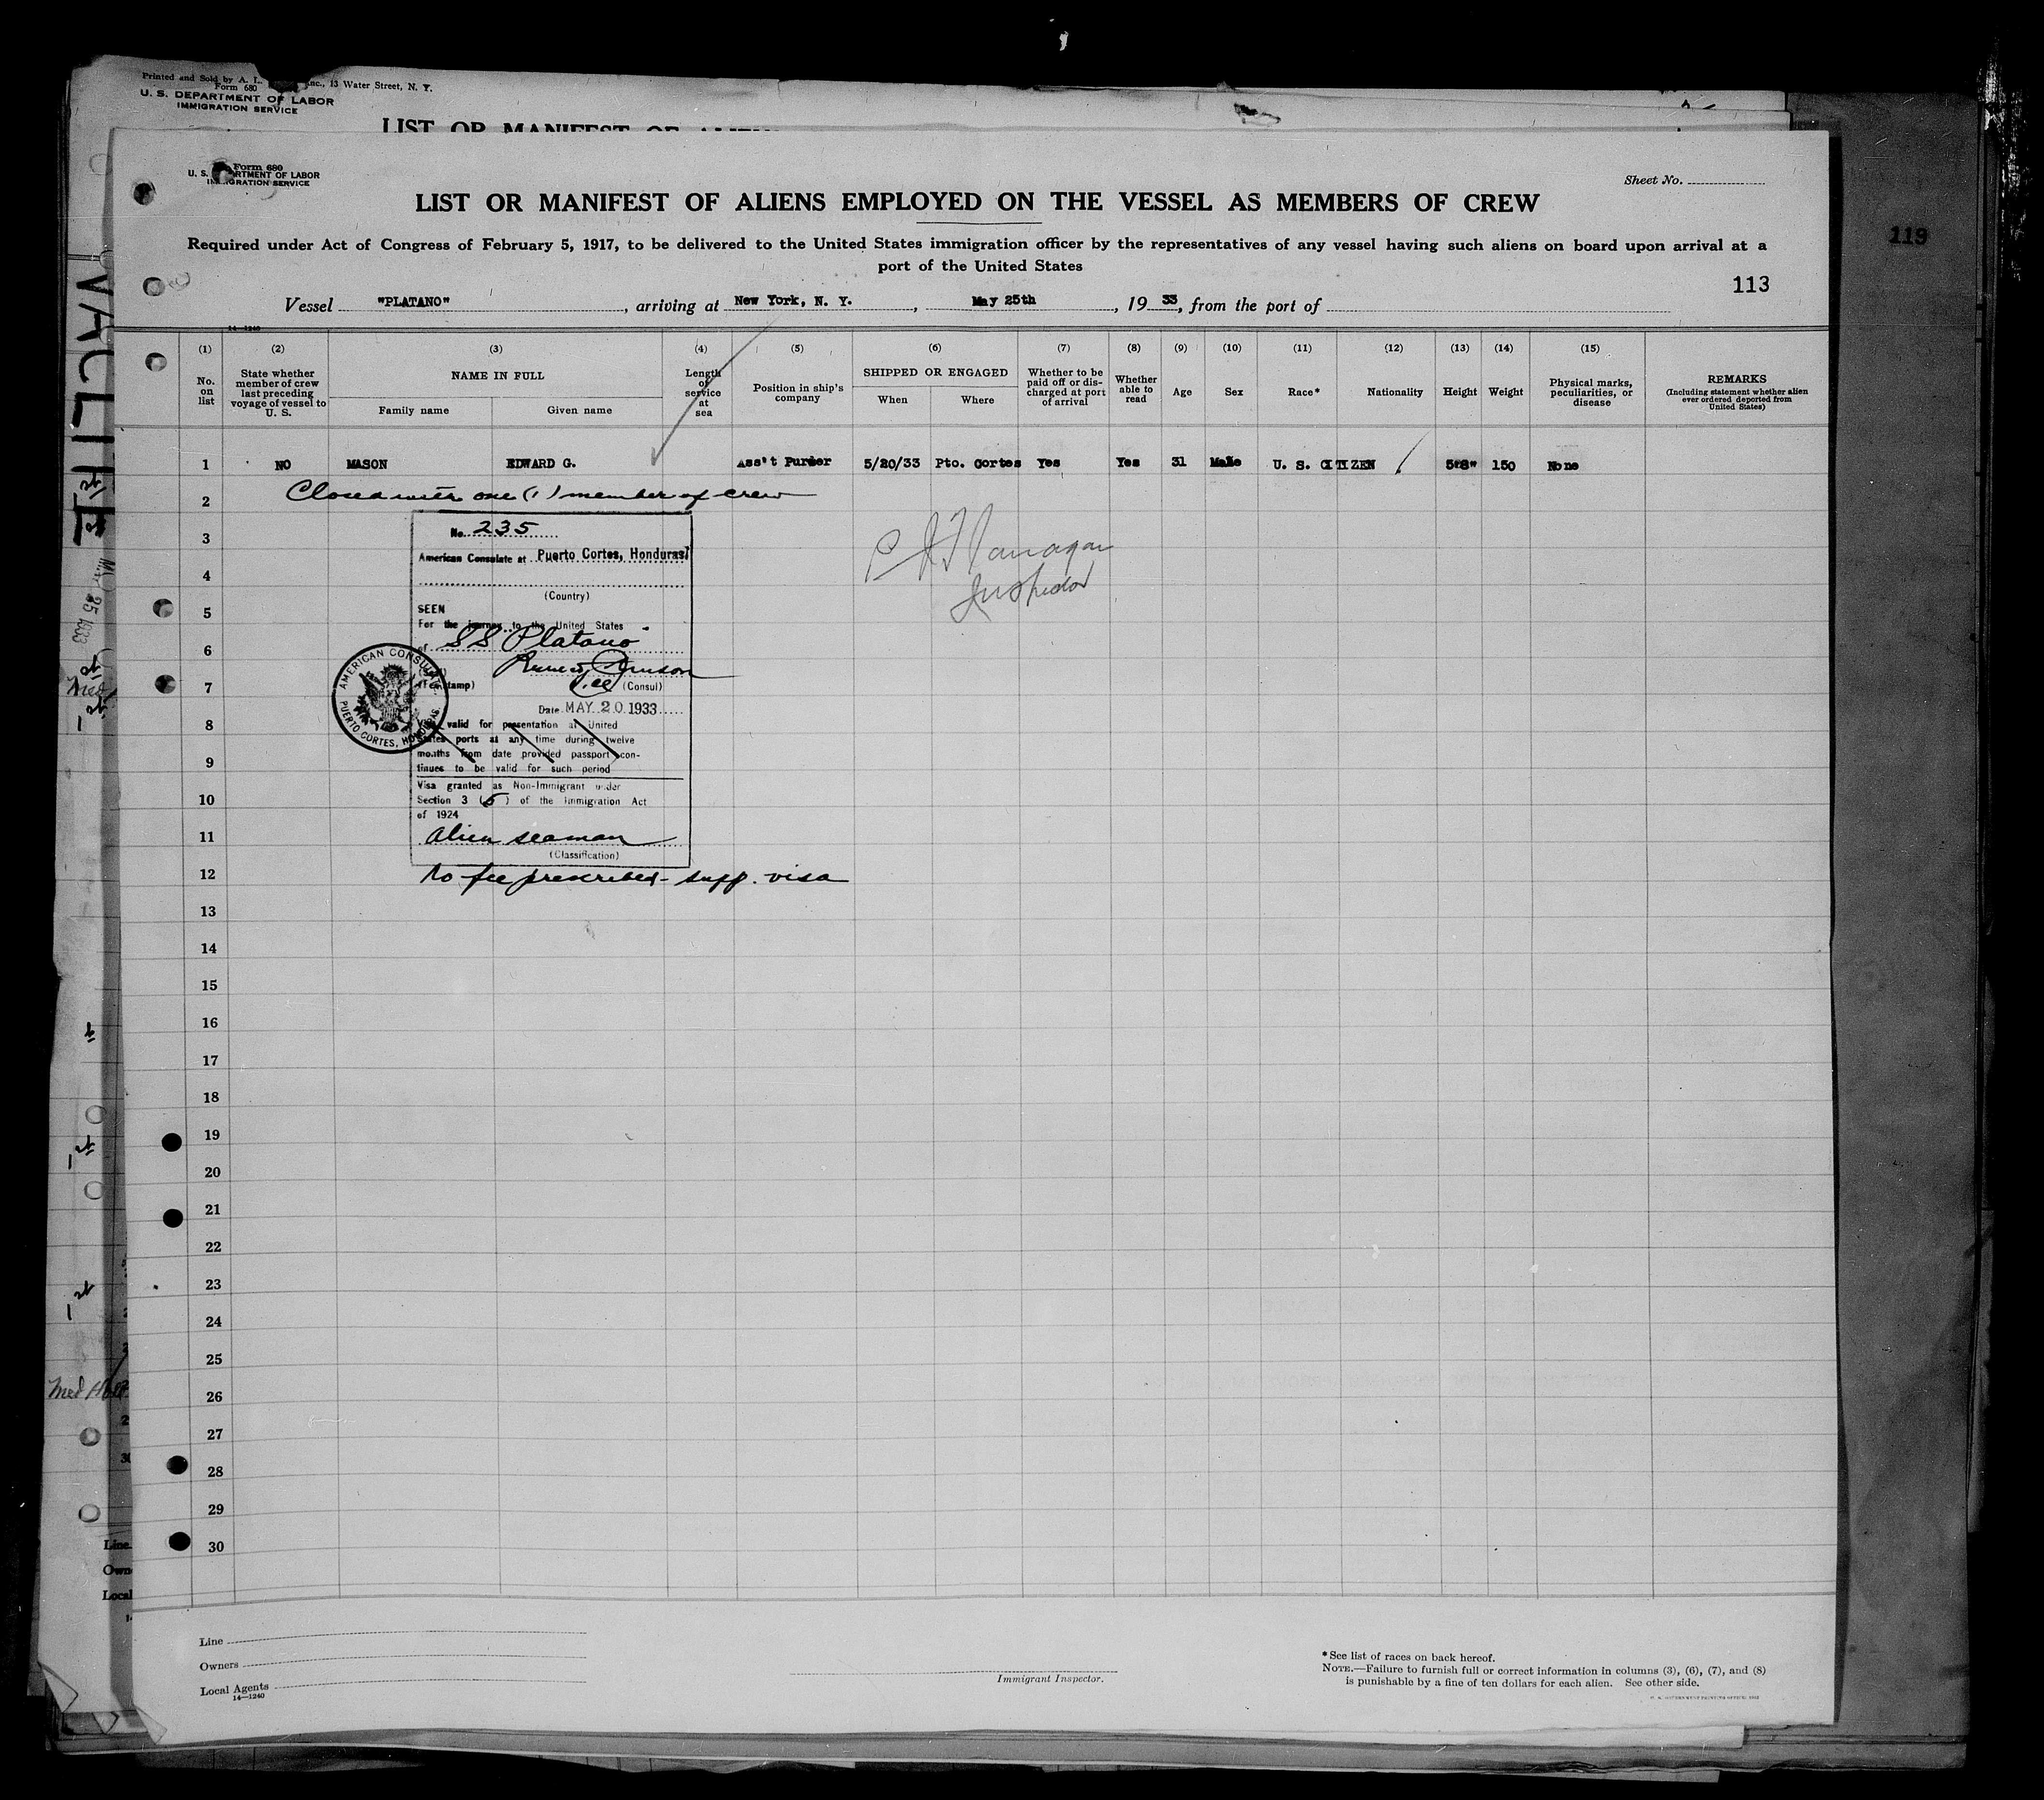 Printed and Sold by A. L. Inc., 13 Water Street, N. Y.
Form 680
U. S. DEPARTMENT OF LABOR
IMMIGRATION SERVICE
LIST OR MANIFEST OF ALIENS
119
Form 680
U. S. DEPARTMENT OF LABOR
IMMIGRATION SERVICE
Sheet No.
LIST OR MANIFEST OF ALIENS EMPLOYED ON THE VESSEL AS MEMBERS OF CREW
Required under Act of Congress of February 5, 1917, to be delivered to the United States immigration officer by the representatives of any vessel having such aliens on board upon arrival at a
port of the United States
113
Vessel "PLATANO", arriving at New York, N. Y., May 25th, 1933, from the port of
14—1240
(1) (2) (3) (4) (5) (6) (7) (8) (9) (10) (11) (12) (13) (14) (15)
No. on list
State whether member of crew last preceding voyage of vessel to U. S.
NAME IN FULL
Family name
Given name
Length of service at sea
Position in ship's company
SHIPPED OR ENGAGED
When
Where
Whether to be paid off or discharged at port of arrival
Whether able to read
Age
Sex
Race*
Nationality
Height
Weight
Physical marks, peculiarities, or disease
REMARKS
(Including statement whether alien ever ordered deported from United States)
1 NO MASON EDWARD G. Ass't Purser 5/20/33 Pto. Cortes Yes Yes 31 Male U. S. CITIZEN 5'8" 150 None
2 Closed with one (1) member of crew
3
4
5
6
7
8
9
10
11
12
13
14
15
16
17
18
19
20
21
22
23
24
25
26
27
28
29
30
No. 235
American Consulate at Puerto Cortes, Honduras
(Country)
SEEN
For the journey to the United States
of SS Platano
Vice (Consul)
Date MAY 20 1933
Visa valid for presentation at United
States ports at any time during twelve
months from date provided passport con-
tinues to be valid for such period
Visa granted as Non-Immigrant under
Section 3 (5) of the Immigration Act
of 1924
alien seaman
(Classification)
No fee prescribed - supp. visa
AMERICAN CONSULATE
PUERTO CORTES, HONDURAS
Flanagan
Inspector
Line
Owners
Local Agents
14—1240
Immigrant Inspector.
*See list of races on back hereof.
NOTE.—Failure to furnish full or correct information in columns (3), (6), (7), and (8)
is punishable by a fine of ten dollars for each alien. See other side.